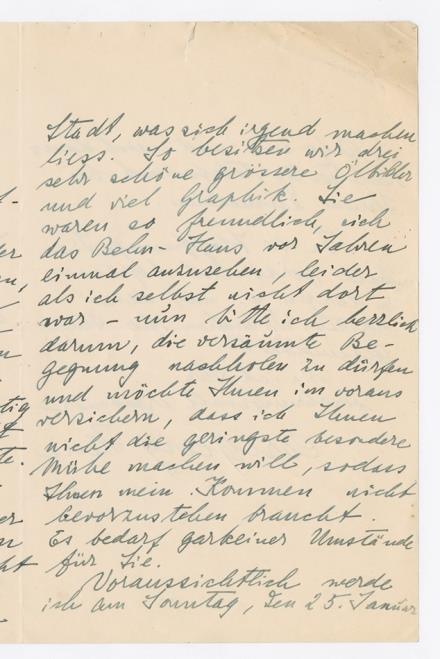 Stadt, was sich irgend machen
liess. So besitzen wir drei
sehr schöne grössere Ölbilder
und viel Graphik. Sie
waren so freundlich, sich
das Behn-Haus vor Jahren
einmal anzusehen, leider
als ich selbst nicht dort
war – nun bitte ich herzlich
darum, die versäumte Be-
gegnung nachholen zu dürfen
und möchte Ihnen im voraus
versichern, dass ich Ihnen
nicht die geringste besondere
Mühe machen will, sodass
Ihnen mein Kommen nicht
bevorzustehen braucht.
Es bedarf garkeiner Umstände
für Sie.
Voraussichtlich werde
ich am Sonntag, den 25. Januar